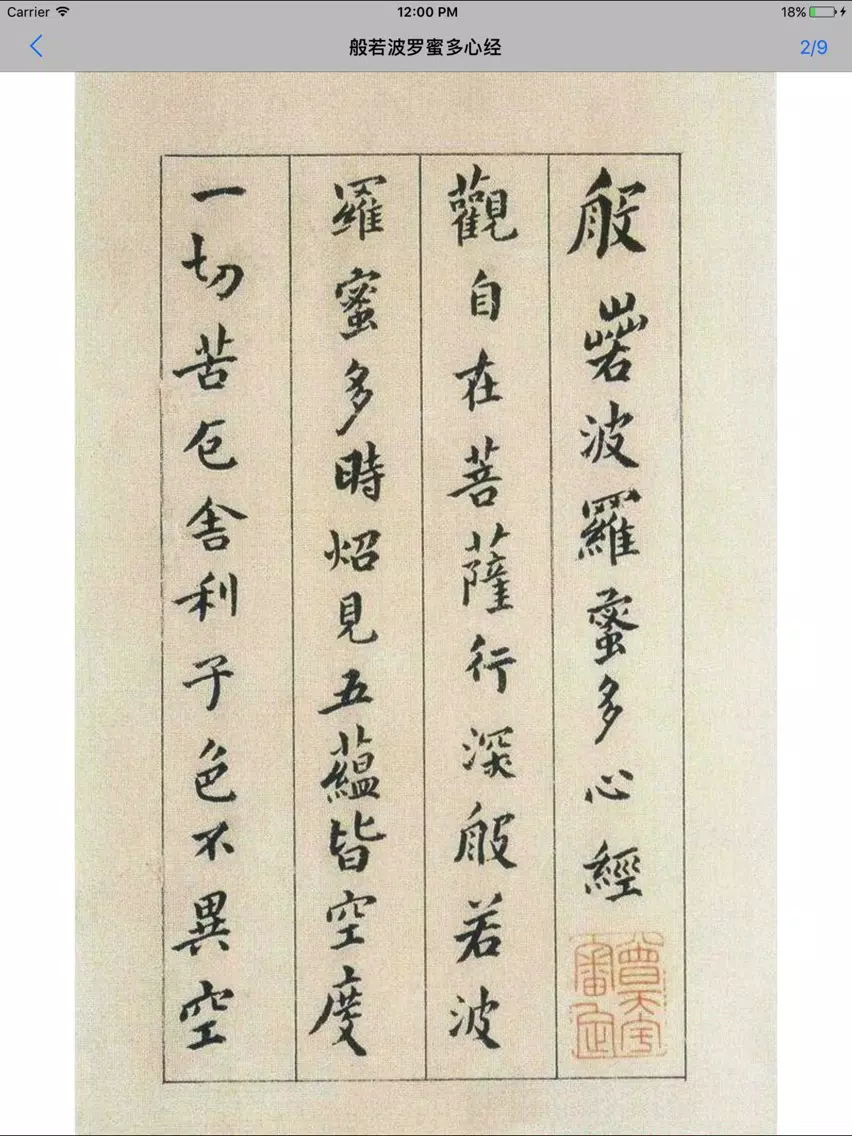 Carrier 12:00 PM 18%
般若波罗蜜多心经 2/9
般若波羅蜜多心經
觀自在菩薩行深般若波
羅蜜多時炤見五蘊皆空度
一切苦厄舍利子色不異空